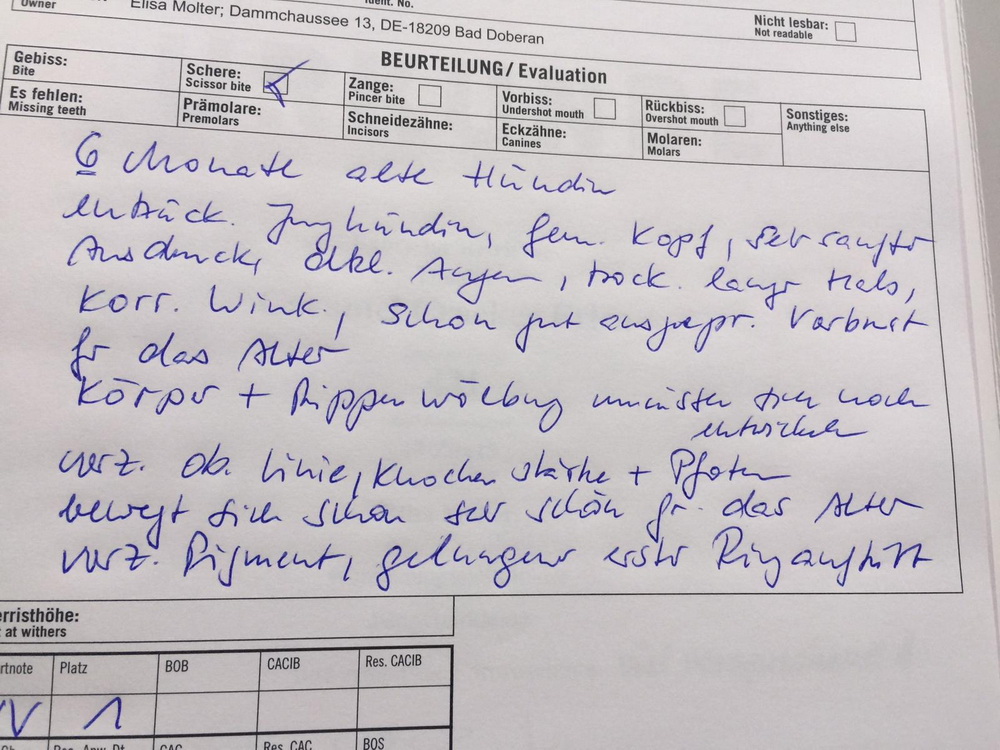 Owner
Ident. No.
Elisa Molter; Dammchaussee 13, DE-18209 Bad Doberan
Nicht lesbar:
Not readable
BEURTEILUNG/ Evaluation
Gebiss:
Bite
Schere:
Scissor bite
Zange:
Pincer bite
Vorbiss:
Undershot mouth
Rückbiss:
Overshot mouth
Sonstiges:
Anything else
Es fehlen:
Missing teeth
Prämolare:
Premolars
Schneidezähne:
Incisors
Eckzähne:
Canines
Molaren:
Molars
6 Monate alte Hündin
entzück. Junghündin, fem. Kopf, sehr sanfter
Ausdruck, dkl. Augen, trock. langer Hals,
korr. Wink., schon gut ausgepr. Vorbrust
fr das Alter
Körper + Rippenwölbung müssten sich noch
entwickeln
vorz. ob. Linie, Knochenstärke + Pfoten
bewegt sich schon sehr schön fr. das Alter
vorz. Pigment, gelungener erster Ringauftritt
erristhöhe:
at withers
rtnote
Platz
BOB
CACIB
Res. CACIB
VV
1
CAC
Res. CAC
BOS